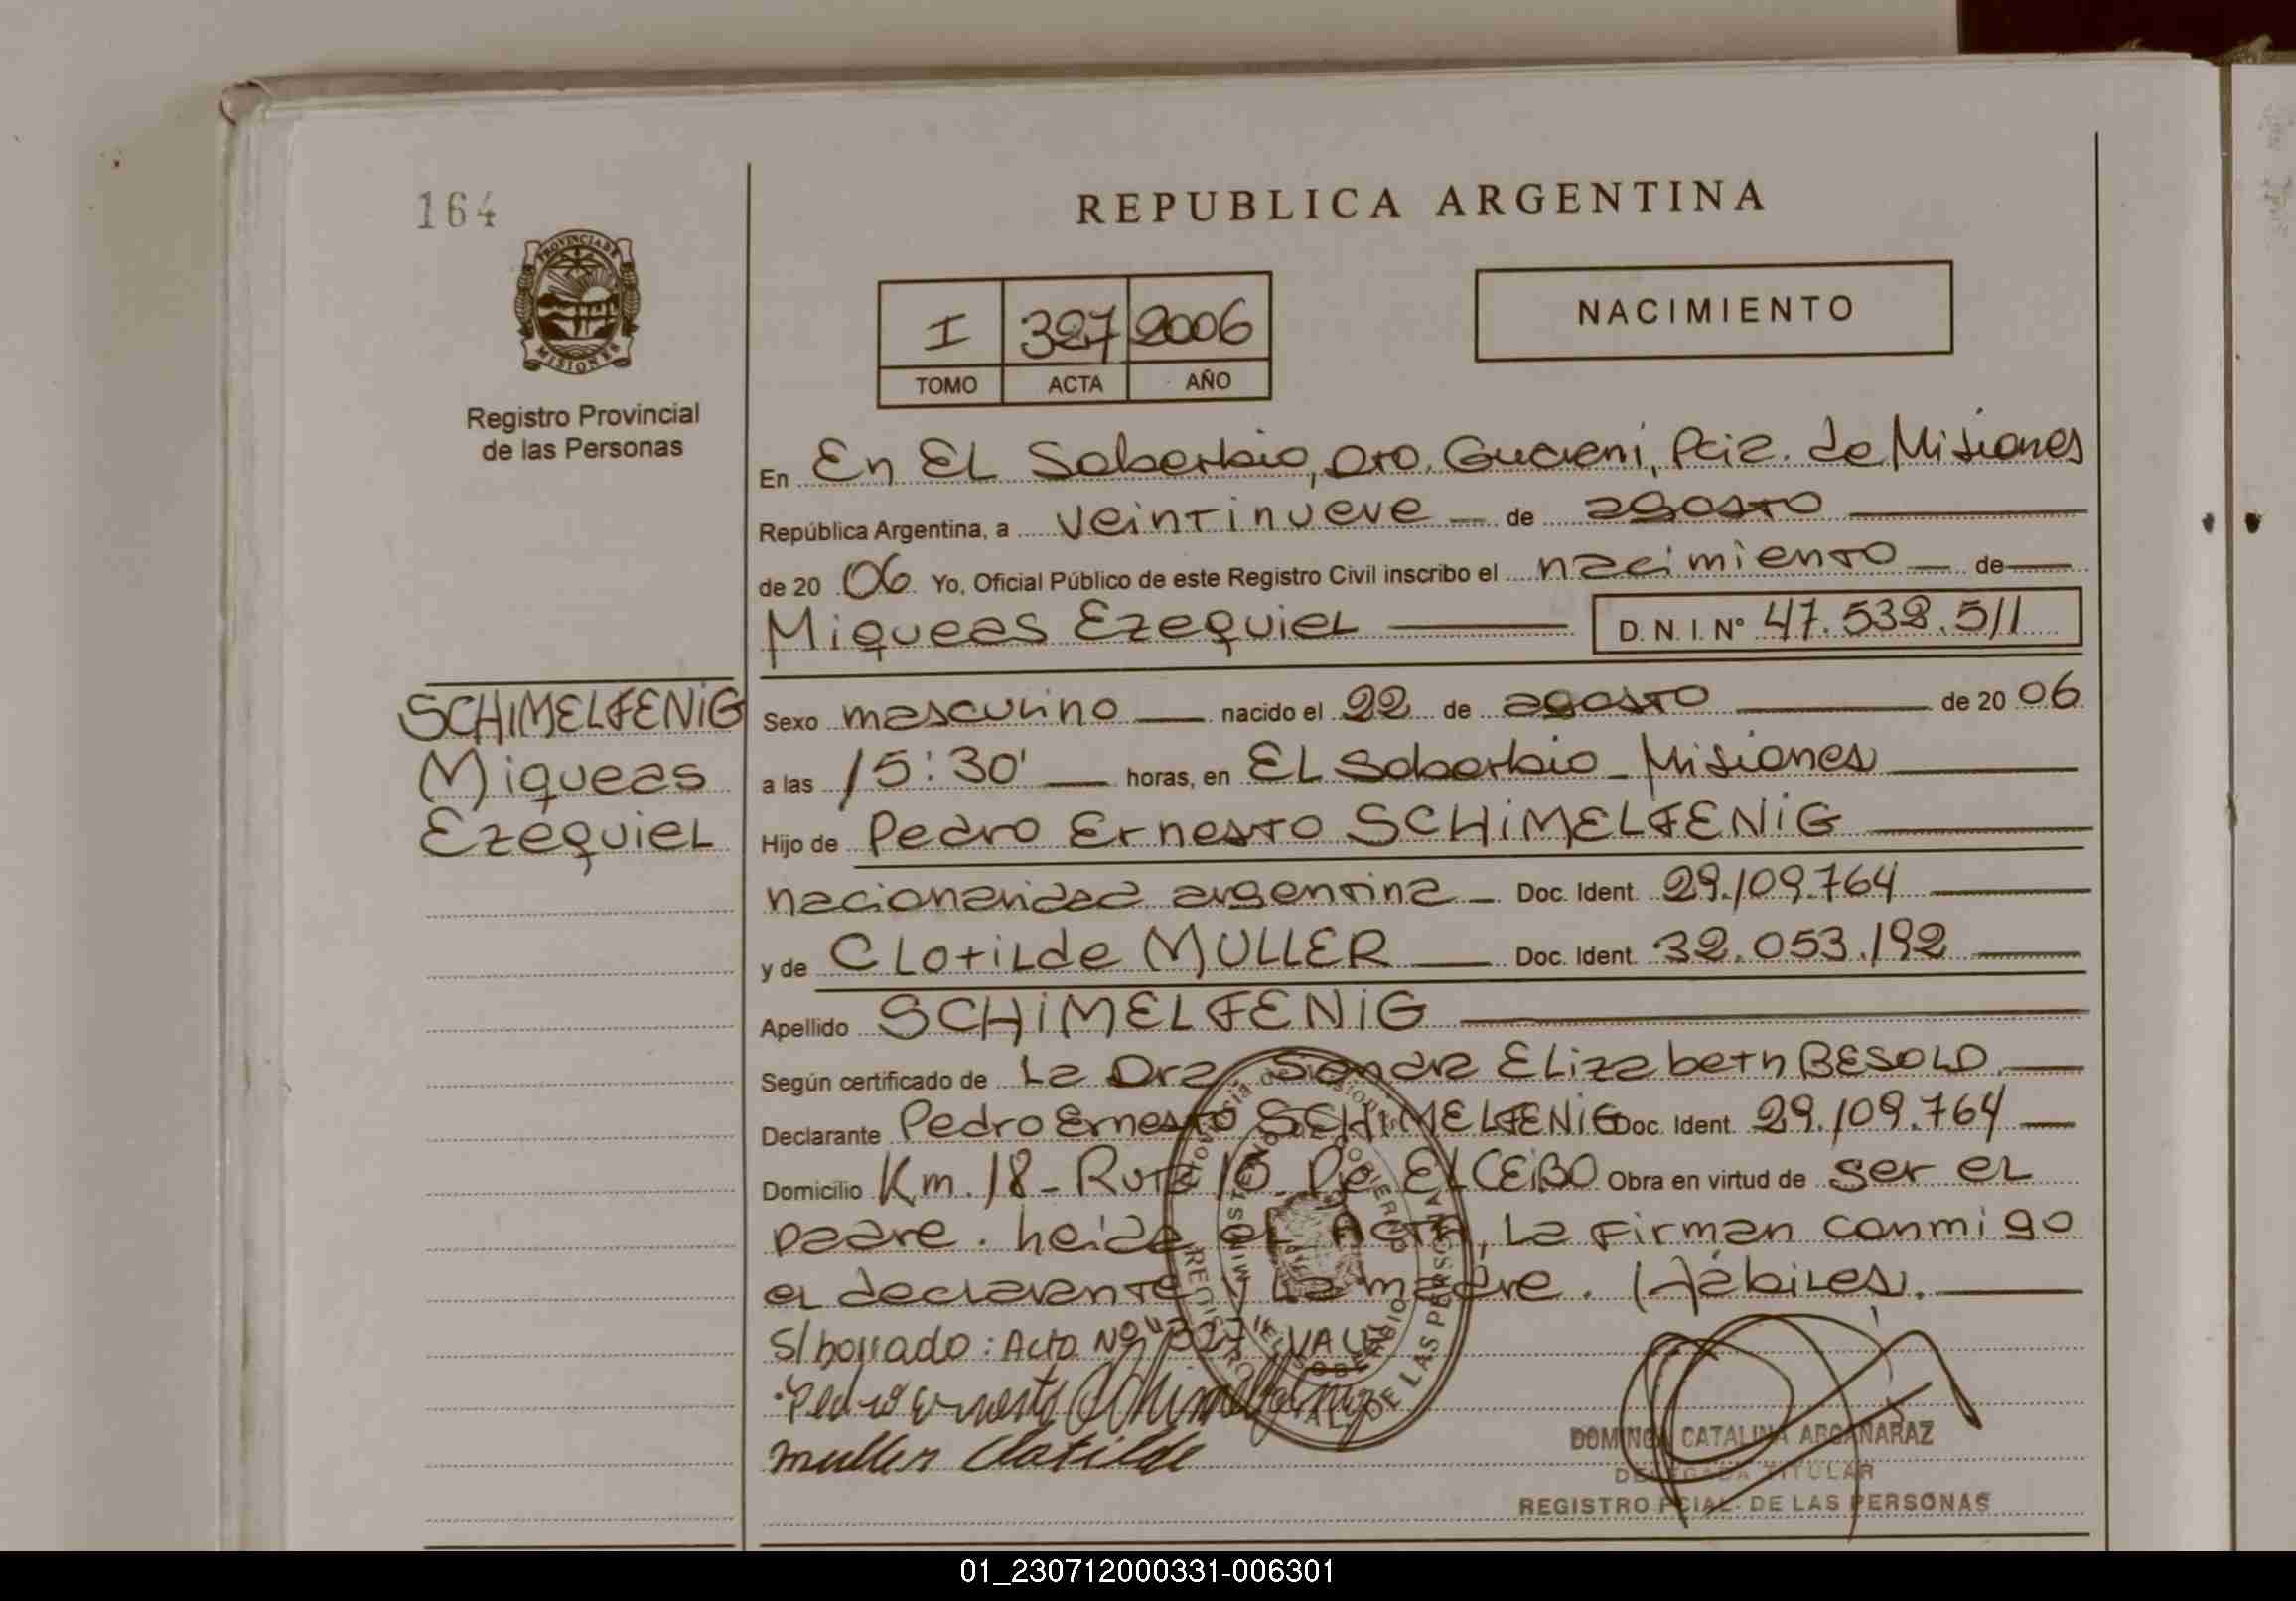 164
REPUBLICA ARGENTINA
PROVINCIA DE
MISIONES
Registro Provincial
de las Personas
I 327 2006
TOMO ACTA AÑO
NACIMIENTO
En En EL Soberbio, Dto. Guarani, Pcia. de Misiones
República Argentina, a veintinueve de agosto
de 20 06 Yo, Oficial Público de este Registro Civil inscribo el nacimiento de
Miqueas Ezequiel D.N.I. Nº 47.538.511
SCHIMELFENIG
Miqueas
Ezequiel
Sexo masculino nacido el 22 de agosto de 20 06
a las 15:30' horas, en EL Soberbio - Misiones
Hijo de Pedro Ernesto SCHIMELFENIG
nacionalidad argentina Doc. Ident. 29.109.764
y de Clotilde MULLER Doc. Ident. 32.053.192
Apellido SCHIMELFENIG
Según certificado de La Dra Sandra Elizabeth BESOLD
Declarante Pedro Ernesto SCHIMELFENIG Doc. Ident. 29.109.764
Domicilio Km. 18 - Ruta 10 EL CEIBO Obra en virtud de ser el
padre. Leida el Acta, La Firman conmigo
el declarante y La madre. Hábiles.
S/borrado: Acta Nº "327" VALE
Pedro Ernesto Schimelfenig
Muller Clotilde
DOMINGA CATALINA ARGAÑARAZ
DELEGADA TITULAR
REGISTRO PCIAL. DE LAS PERSONAS
01_230712000331-006301